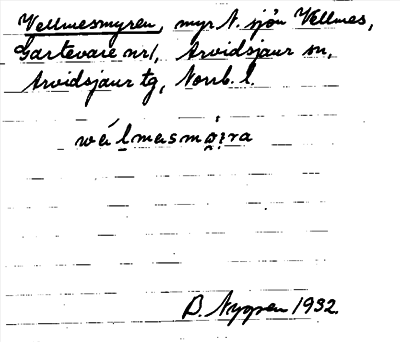 Vellmesmyren, myr N. sjön Vellmes,
Gartevare nr 1, Arvidsjaur sn,
Arvidsjaur tg, Norrb. l.
wélmasmøi̯ra
B. Nygren 1932.